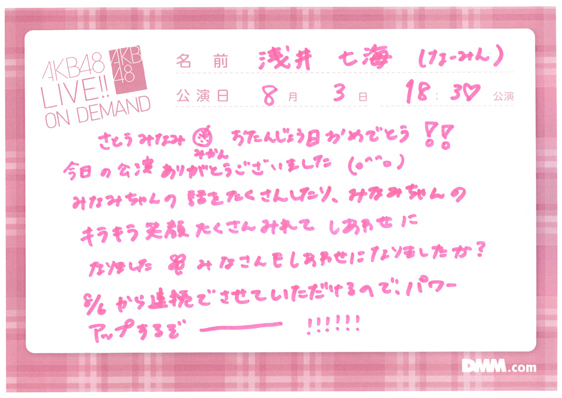 AKB48
LIVE!!
ON DEMAND
AKB
48
名前 浅井 七海 (なーみん)
公演日 8月 3日 18:30公演
さとうみなみ おたんじょう日おめでとう!!
みかん
今日の公演ありがとうございました (o^^o)
みなみちゃんの話をたくさんしたり、みなみちゃんの
キラキラ笑顔たくさんみれて しあわせに
なりました みなさんもしあわせになりましたか?
8/6から連続でさせていただけるので、パワー
アップするぞ ――― !!!!!!
DMM.com